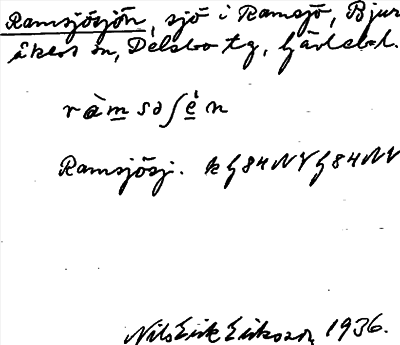 Ramsjösjön, sjö i Ramsjö, Bjur
åkers sn, Delsbo tg, Gävlebl.
ràmsoʃèn
Ramsjösj. k G84NV G84NV
Nils Erik Eriksson 1936.